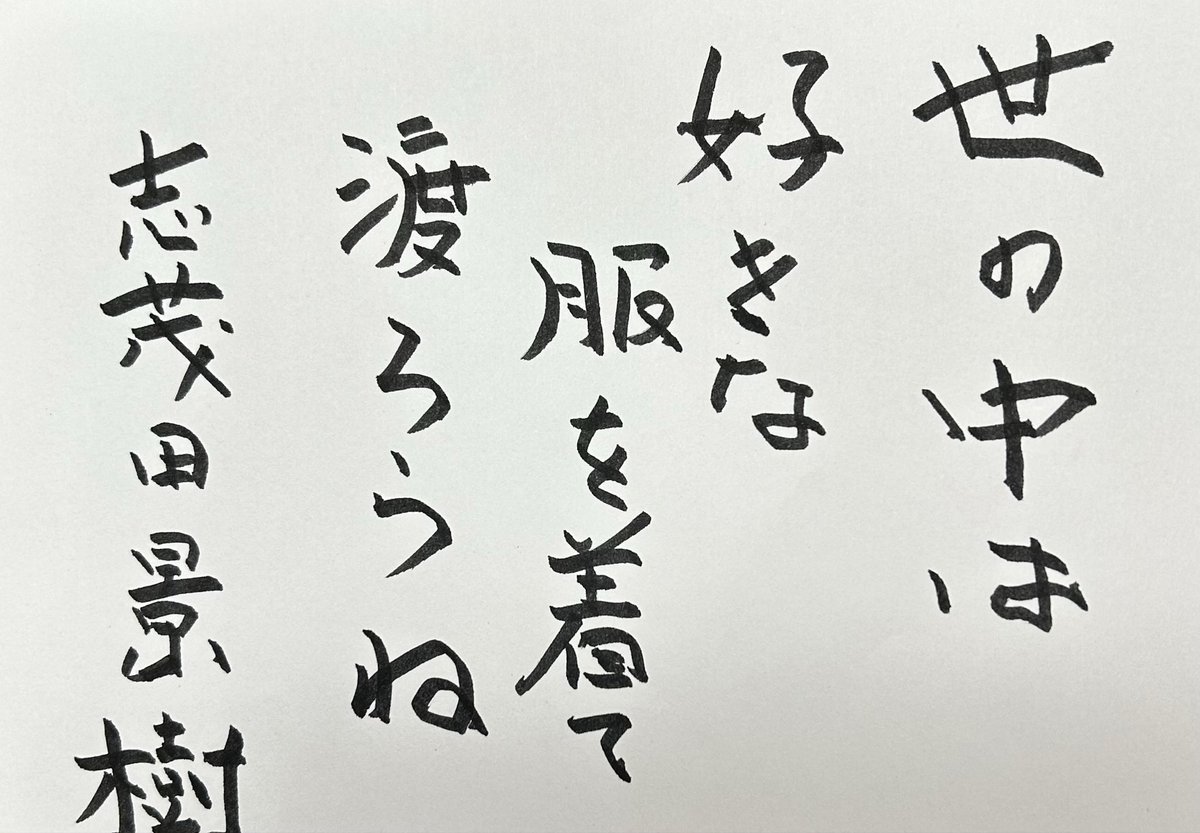 世の中は
好きな
服を着て
渡ろうね
志茂田景樹